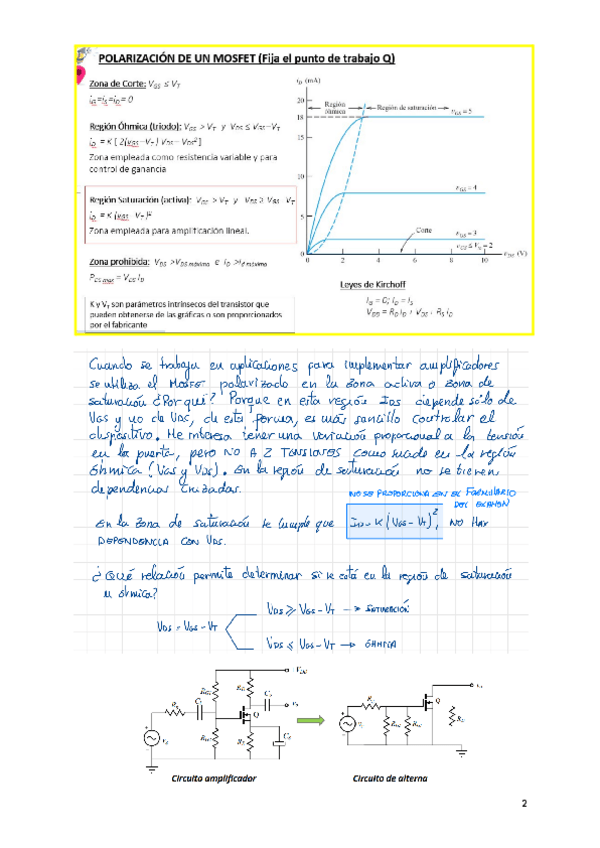 POLARIZACIÓN DE UN MOSFET (Fija el punto de trabajo Q)
Zona de Corte: VGS ≤ VT
iG=iS=iD= 0
Región Óhmica (triodo): VGS > VT y VDS ≤ VGS-VT
iD = K [ 2(vGS-VT) VDS- VDS²]
Zona empleada como resistencia variable y para
control de ganancia
Región Saturación (activa): VGS > VT y VDS ≥ VGS-VT
iD = K (vGS-VT)²
Zona empleada para amplificación lineal.
Zona prohibida: VDS >VDS máximo e iD >iD máximo
PDS max = VDS iD
K y VT son parámetros intrínsecos del transistor que
pueden obtenerse de las gráficas o son proporcionados
por el fabricante
iD (mA)
20
18
15
10
5
0
0 2 4 6 8 10
Región
óhmica
Región de saturación
vGS = 5
vGS = 4
vGS = 3
Corte
vDS (V)
Leyes de Kirchoff
IG = 0; ID = IS
VDD = RD ID + VDS + RS ID
Cuando se trabaja en aplicaciones para implementar amplificadores
se utiliza el MOSFET polarizado en la zona activa o zona de
saturación ¿Por qué? Porque en esta región IDS depende sólo de
VGS y no de VDS, de esta forma, es más sencillo controlar el
dispositivo. Me interesa tener una variación proporcional a la tensión
en la puerta, pero NO A 2 TENSIONES como sucede en la región
óhmica (VGS y VDS). En la región de saturación no se tienen
dependencias cruzadas.
NO SE PROPORCIONA EN EL FORMULARIO
DEL EXAMEN
En la zona de saturación se cumple que ID = K (VGS - VT)², NO HAY
DEPENDENCIA CON VDS.
¿Qué relación permite determinar si se está en la región de saturación
u óhmica?
VDS ≥ VGS - VT → SATURACIÓN
VDS = VGS - VT
VDS ≤ VGS - VT → ÓHMICA
Q
Q
Circuito amplificador
Circuito de alterna
2